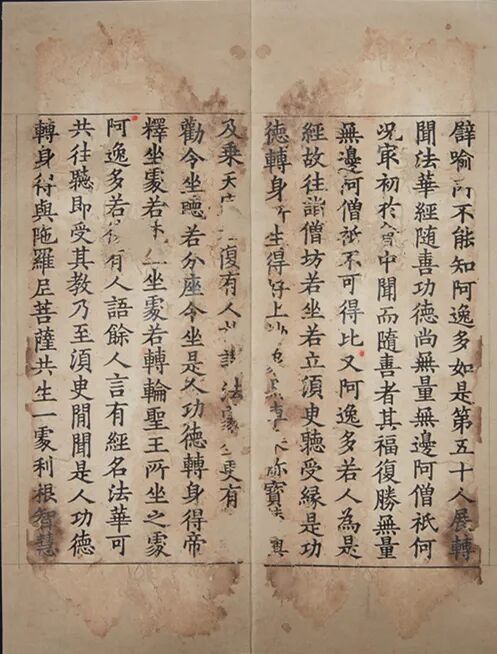 譬喻所不能知阿逸多如是第五十人展轉
聞法華經随喜功德尚無量無邊阿僧祇何
况冣初於會中聞而隨喜者其福復勝無量
無邊阿僧祇不可得比又阿逸多若人為是
經故往詣僧坊若坐若立湏臾聽受縁是功
德轉身所生得好上珎寶
及乘天復有人講法處更有
勸令坐聽若分座令坐是人功德轉身得帝
釋坐處若坐處若轉輪聖王所坐之處
阿逸多若有人語餘人言有經名法華可
共往聽即受其教乃至湏臾閒聞是人功德
轉身得與陁羅尼菩薩共生一處利根智慧